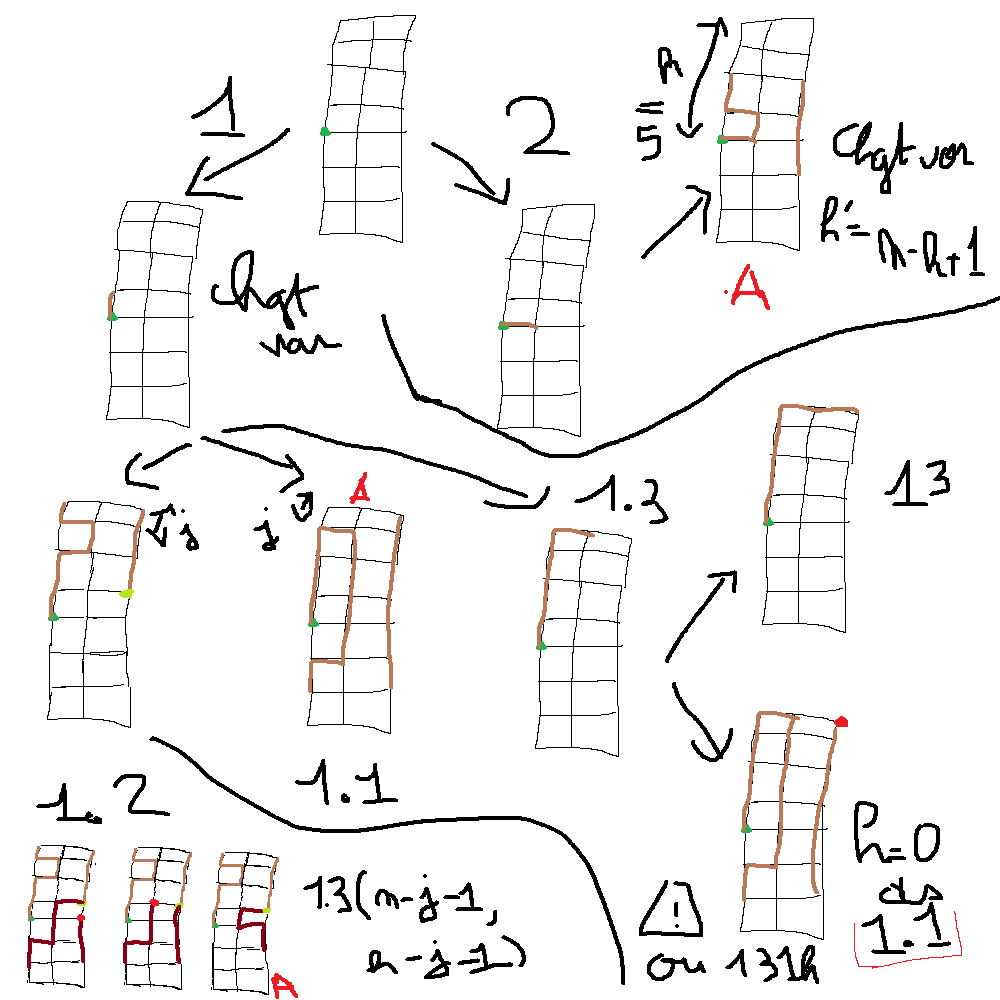 1
2
h
=
5
Chgt var
h'=
n-h+1
A
Chgt
var
j
j
A
1.3
13
1.2
1.1
1.3(n-j-1,
h-j-1)
A
h=0
ds
1.1
!
ou 131h